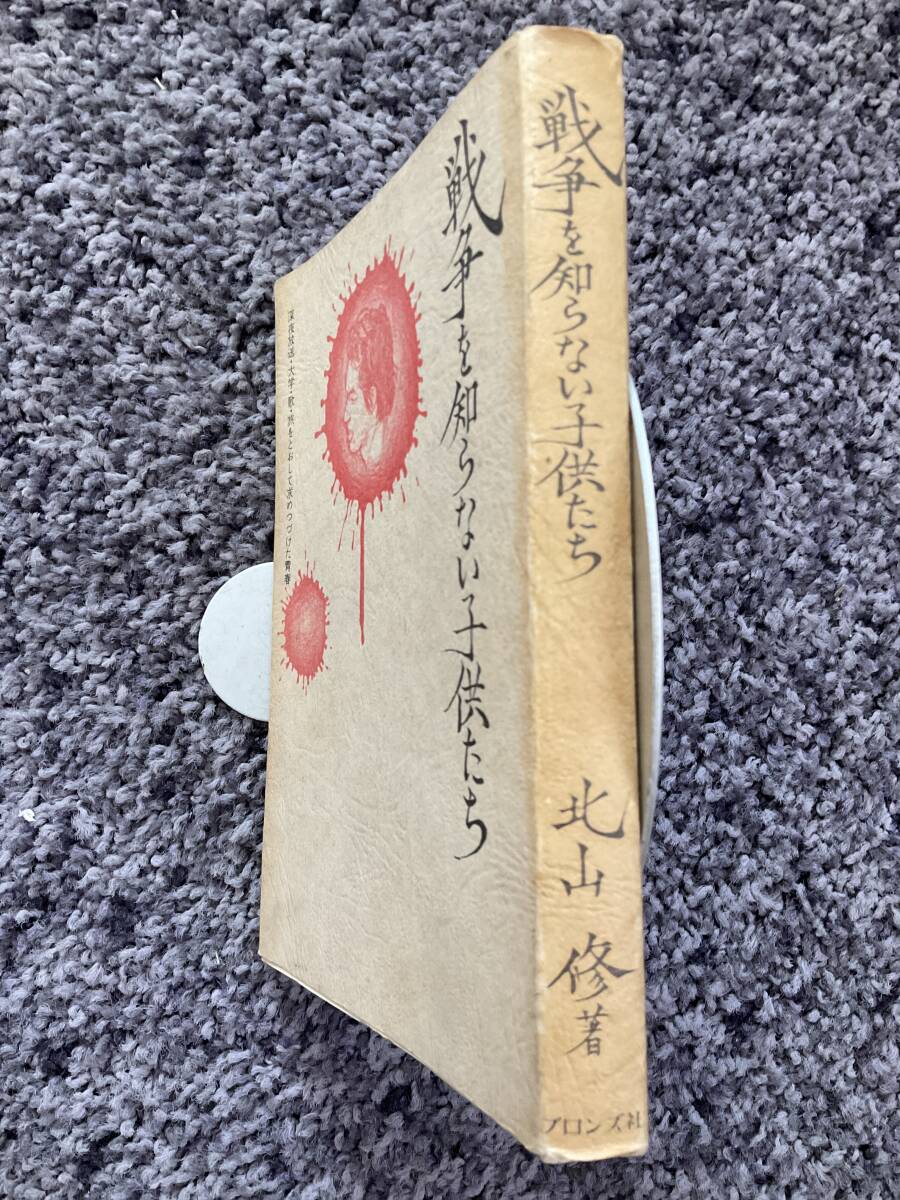 戦争を知らない子供たち
北山 修著
ブロンズ社
戦争を知らない子供たち
深夜放送・大学・歌・旅をとおして求めつづけた青春